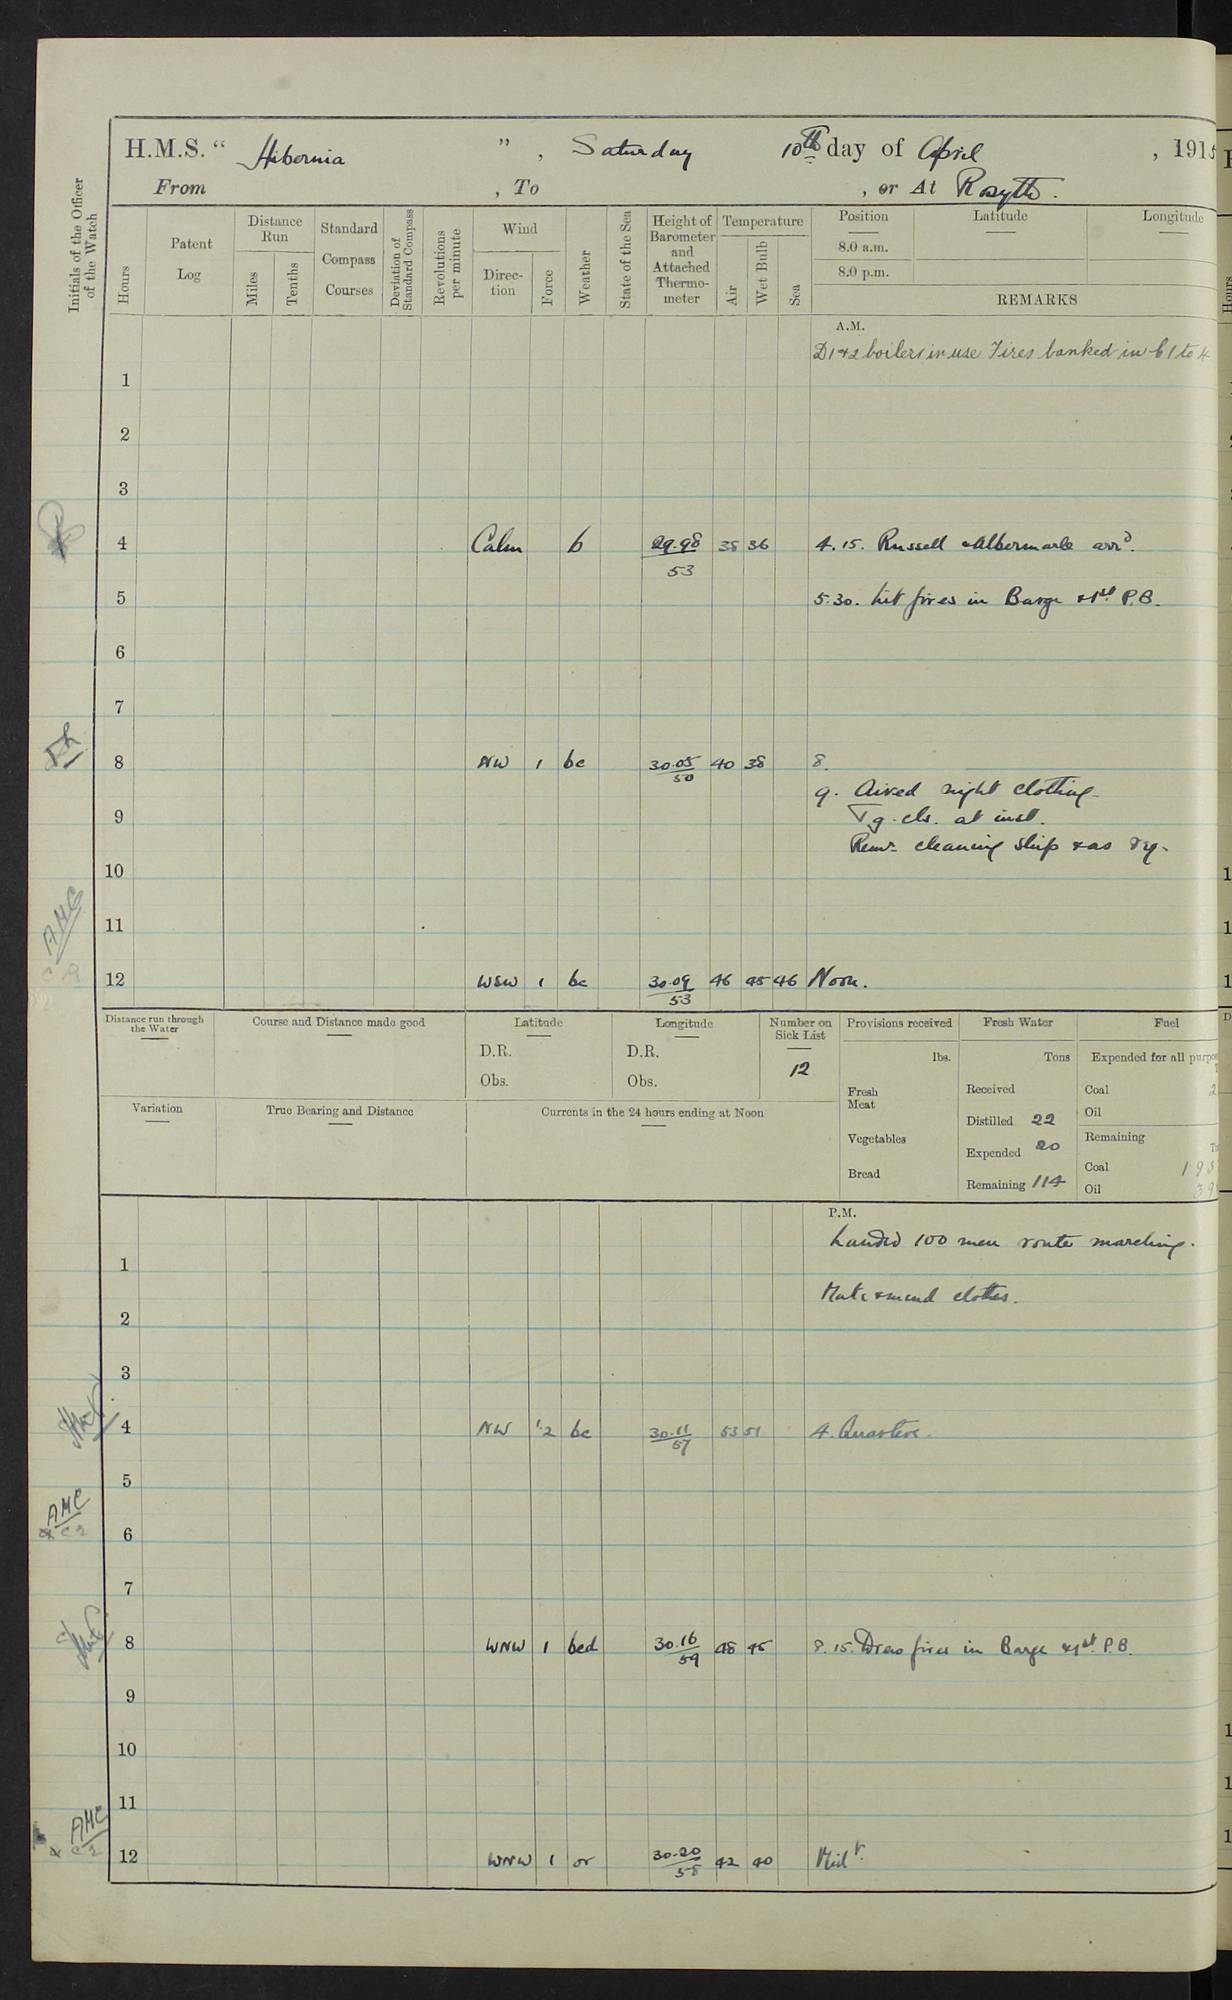 H.M.S. “ Hibernia ” , Saturday 10th day of April , 1915
From , To , or At Rosyth.
Initials of the Officer of the Watch
Hours
Patent Log
Distance Run
Miles
Tenths
Standard Compass Courses
Deviation of Standard Compass
Revolutions per minute
Wind
Direction
Force
Weather
State of the Sea
Height of Barometer and Attached Thermometer
Temperature
Air
Wet Bulb
Sea
Position Latitude Longitude
8.0 a.m.
8.0 p.m.
REMARKS
A.M.
D1 & 2 boilers in use Fires banked in C 1 to 4
1
2
3
4 Calm b 29.98 53 38 36 4.15. Russell & Albermarle arrd.
5 5.30. Lit fires in Barge & 1st P.B.
6
7
8 NW 1 bc 30.05 50 40 38 8.
9. Aired night clothing.
9 Tg. cls. at inst.
Remr cleaning ship & as req.
10
AMC
11
12 WSW 1 bc 30.09 53 46 45 46 Noon.
Distance run through the Water
Course and Distance made good
Latitude
D.R.
Obs.
Longitude
D.R.
Obs.
Number on Sick List
12
Provisions received
lbs.
Fresh Meat
Vegetables
Bread
Fresh Water
Tons
Received
Distilled 22
Expended 20
Remaining 114
Fuel
Expended for all purpo
Coal 2
Oil
Remaining
Coal 193
Oil 39
Variation
True Bearing and Distance
Currents in the 24 hours ending at Noon
P.M.
Landed 100 men route marching.
1
Make & mend clothes.
2
3
4 NW 1.2 bc 30.11 57 53 51 4. Quarters.
5
AMC
6
7
8 WNW 1 bcd 30.16 59 48 45 8.15. Drew fires in Barge & 1st P.B.
9
10
11
AMC
12 WNW 1 or 30.20 58 42 40 Midt.